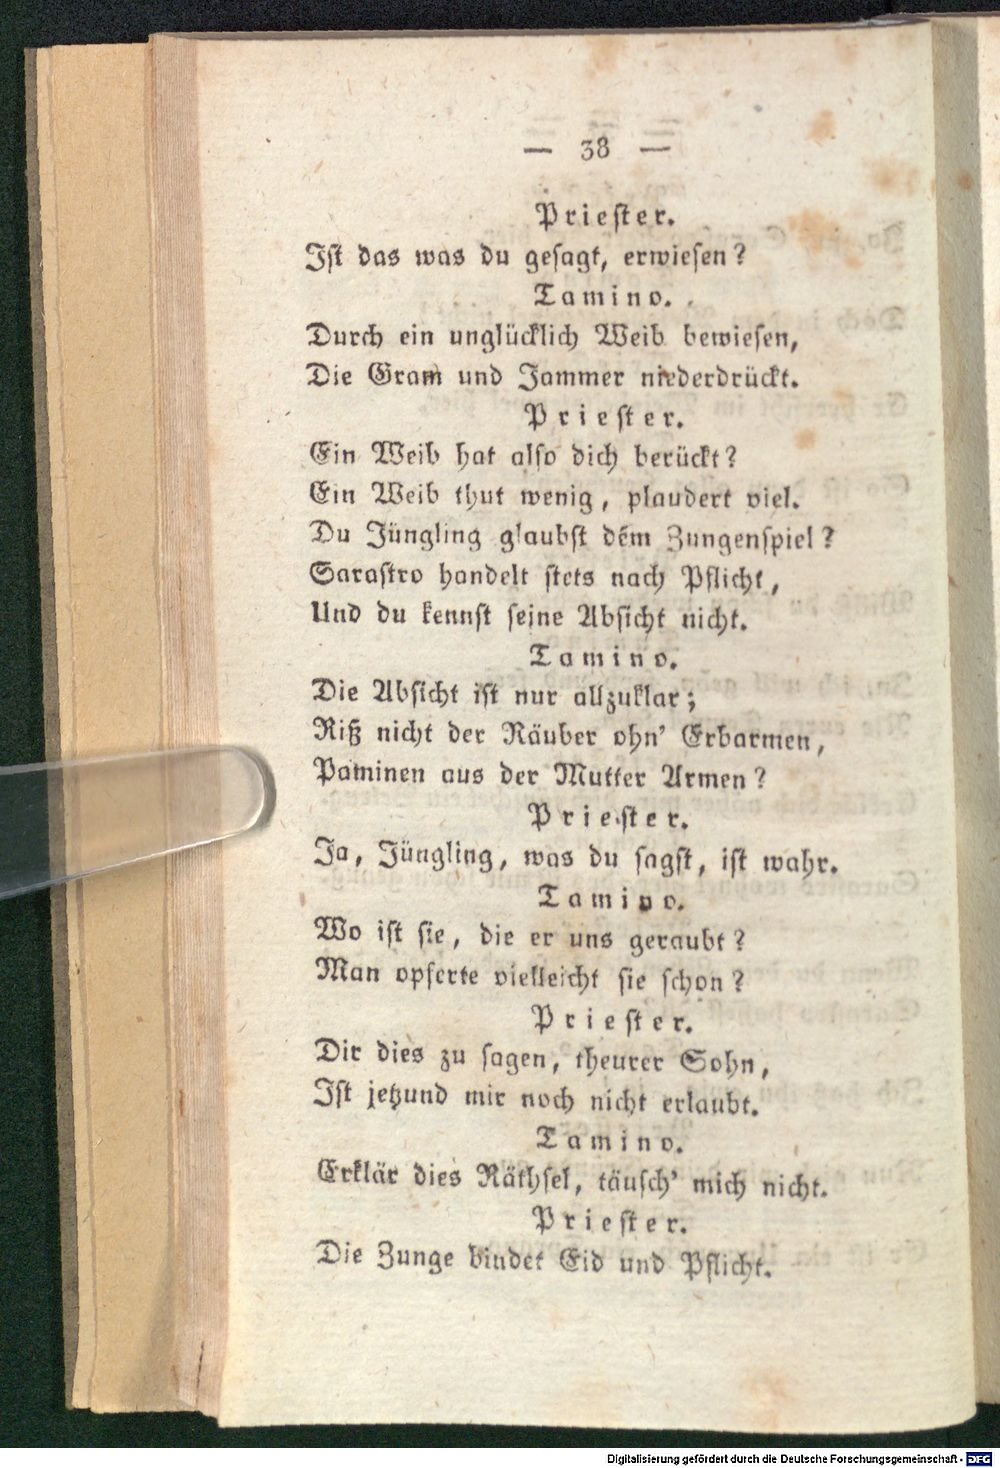 — 38 —
Priester.
Ist das was du gesagt, erwiesen?
Tamino.
Durch ein unglücklich Weib bewiesen,
Die Gram und Jammer niederdrückt.
Priester.
Ein Weib hat also dich berückt?
Ein Weib thut wenig, plaudert viel.
Du Jüngling glaubst dem Zungenspiel?
Sarastro handelt stets nach Pflicht,
Und du kennst seine Absicht nicht.
Tamino.
Die Absicht ist nur allzuklar;
Riß nicht der Räuber ohn' Erbarmen,
Paminen aus der Mutter Armen?
Priester.
Ja, Jüngling, was du sagst, ist wahr.
Tamino.
Wo ist sie, die er uns geraubt?
Man opferte vielleicht sie schon?
Priester.
Dir dies zu sagen, theurer Sohn,
Ist jetzund mir noch nicht erlaubt.
Tamino.
Erklär dies Räthsel, täusch' mich nicht.
Priester.
Die Zunge bindet Eid und Pflicht.
Digitalisierung gefördert durch die Deutsche Forschungsgemeinschaft - DFG